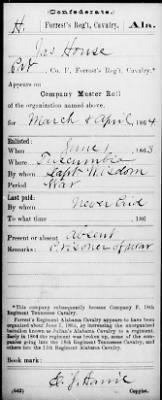 Confederate.
H. Forrest's Reg't, Cavalry. Ala.
Jas House
Pvt, Co. F, Forrest's Reg't, Cavalry.*
Appears on
Company Muster Roll
of the organization named above,
for March & April, 1864
Enlisted:
When June 1, 1863
Where Tuscumbia
By whom Capt Wisdom
Period War
Last paid:
By whom Never Paid
To what time , 186
Present or absent Absent
Remarks: Prisoner of war
*This company subsequently became Company F, 18th Regiment Tennessee Cavalry.
Forrest's Regiment Alabama Cavalry appears to have been organized about June 2, 1863, by increasing the
organization known as Julian's Alabama Cavalry to a regiment.
Early in 1864 the regiment was broken up, some of the companies going into the 18th Regiment Tennessee Cavalry, and others into the
Regiment Alabama Cavalry.
Book mark:
(642)
Copyist.